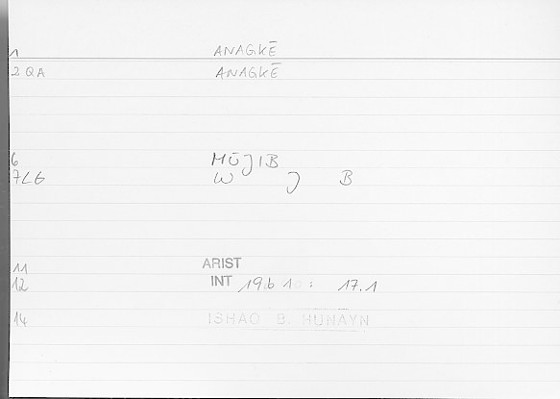 1 ANAGKĒ
2 QA ANAGKĒ
6 MŪJIB
7LG W J B
11 ARIST
12 INT 19b10: 17.1
14 ISHAO B. HUNAYN